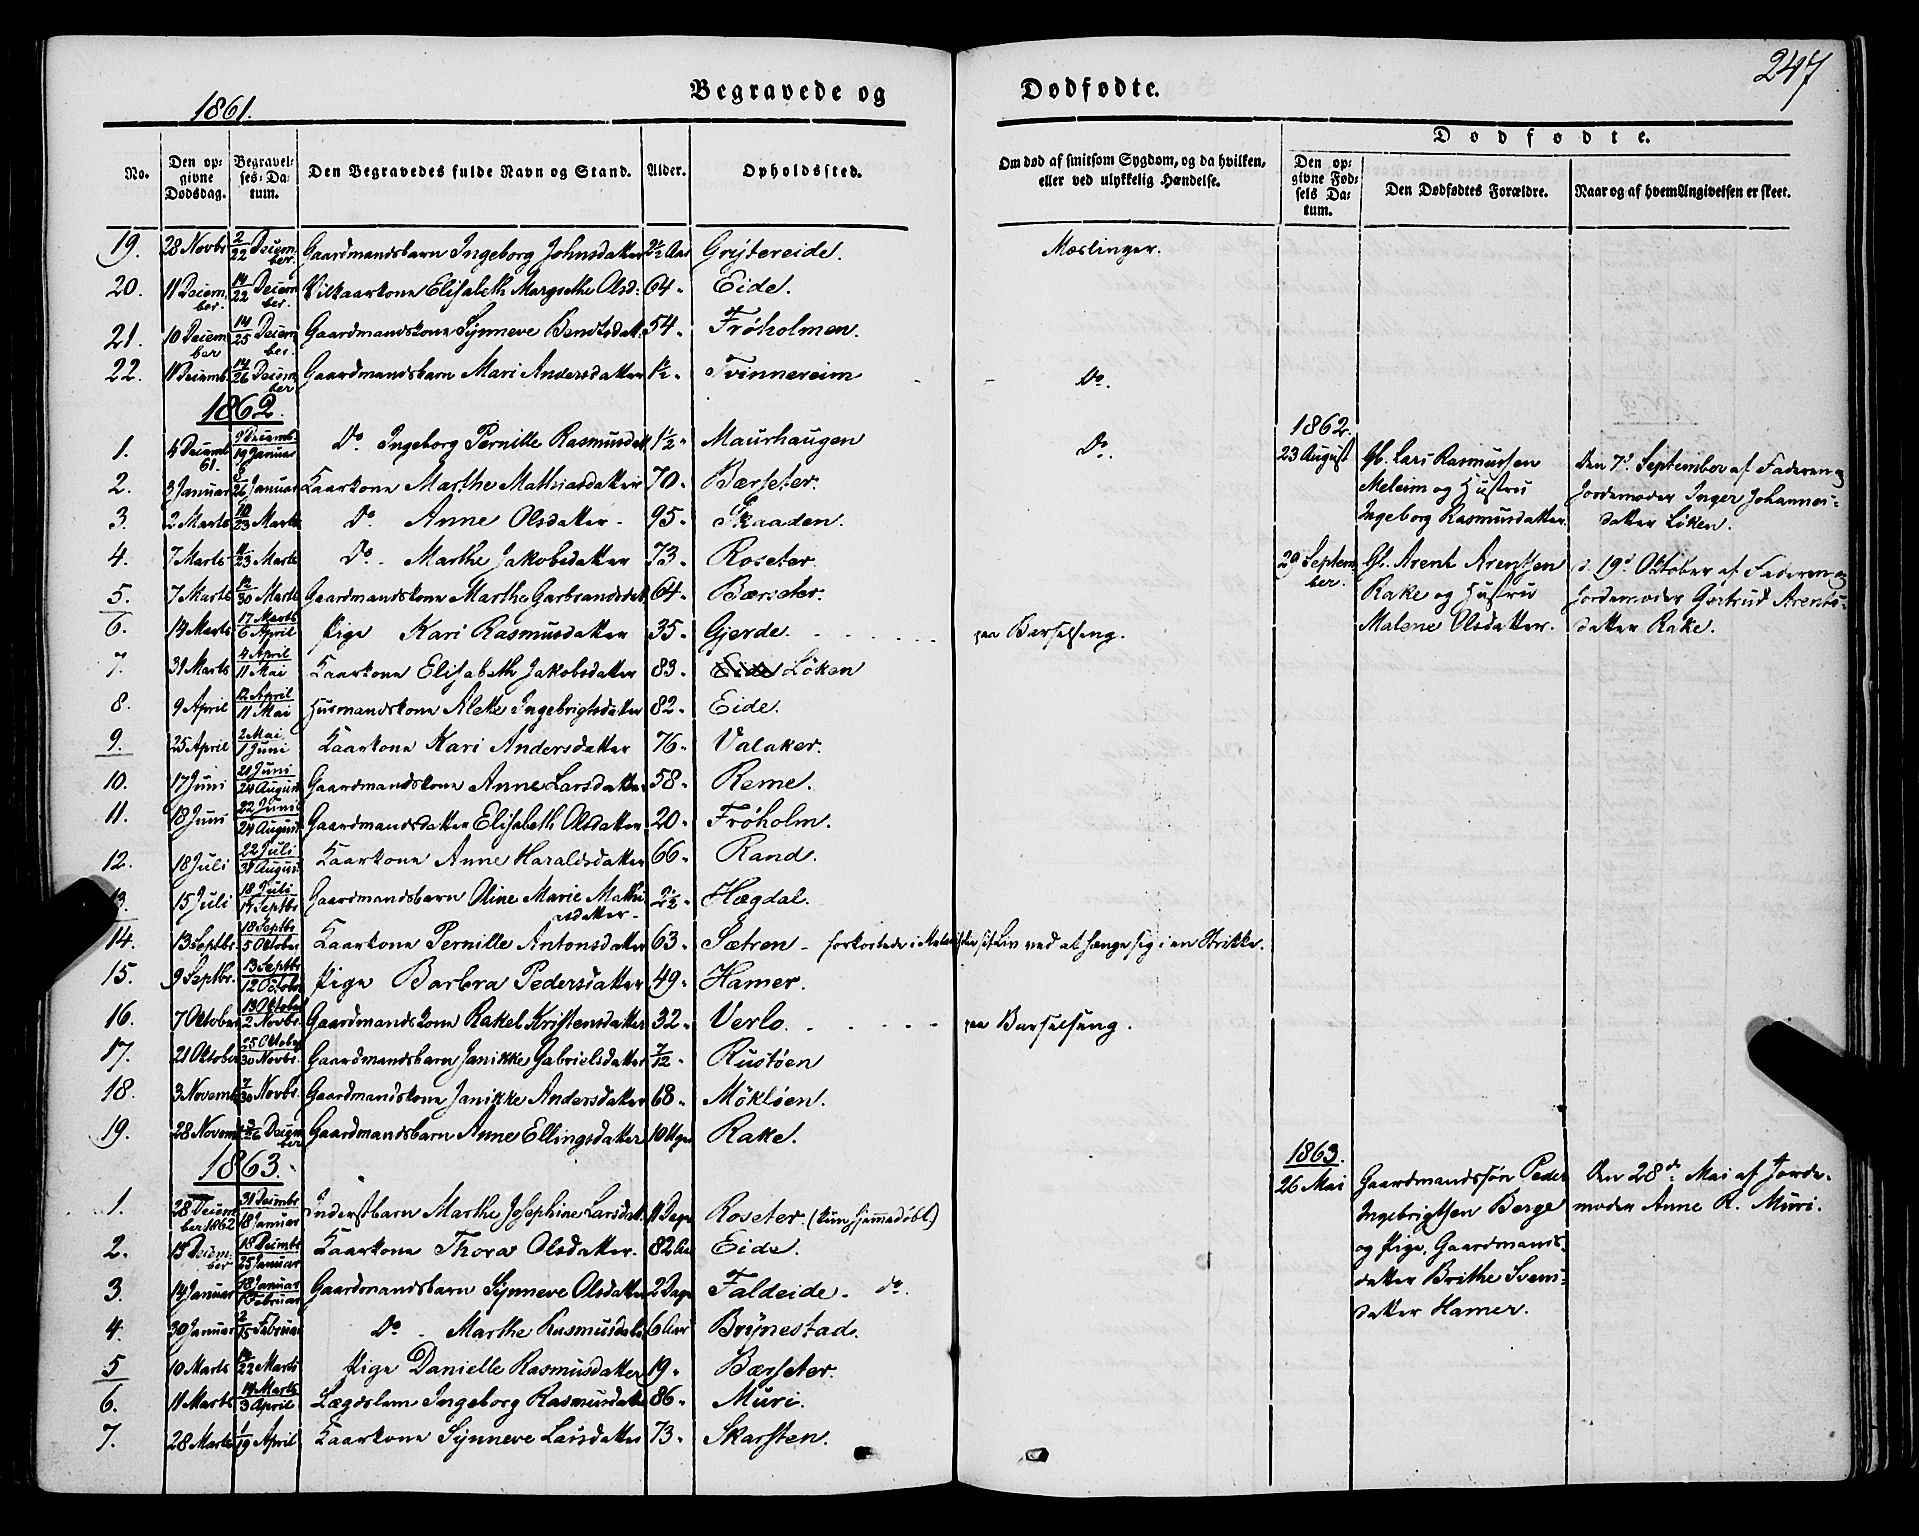 247
Begravede og Dødfødte.
1861.
Dødfødte.
No. Den opgivne Dødsdag. Begravelses-Datum. Den Begravedes fulde Navn og Stand. Alder. Opholdssted. Om død af smitsom Sygdom, og da hvilken, eller ved ulykkelig Hændelse. Den opgivne Fødsels Datum. Den Dødfødtes Forældre. Naar og af hvem Angivelsen er skeet.
19. 28 Novbr 2/22 December. Gaardmandsbarn Ingeborg Johnsdatter 2½ Aar Grytereide. Mæslinger.
20. 11 December. 14/22 December. Vilkaarkone Elisabeth Margrethe Olsd. 64. Eide.
21. 10 December 14/25 December. Gaardmandskone Synneve Bendtsdatt. 54. Frøholmen.
22. 11 Decemb. 14/26 December Gaardmandsbarn Mari Andersdatter 1½. Tvinnereim Do.
1862.
1. 4 Decemb 61. 9 Decemb. 19 Januar Do. Ingeborg Pernille Rasmusdatt 1½. Maurhaugen Do.
2. 3 Januar 8/26 Januar Kaarkone Marthe Mathiasdatter 70. Bærseter.
3. 2 Marts 10/23 Marts Do. Anne Olsdatter. 95. Skaaden.
4. 7 Marts 11/23 Marts Do. Marthe Jakobsdatter 73. Roseter.
5. 7 Marts 12/30 Marts Gaardmandskone Marthe Garbrandsdatt 64. Bærseter.
6. 14 Marts 17 Marts 6 April Pige Kari Rasmusdatter 35. Gjerde. paa Barselseng.
7. 31 Marts 4 April 11 Mai Kaarkone Elisabeth Jakobsdatter 83. Eide Løken
8. 9 April 12 April 11 Mai Husmandskone Alette Ingebrigtsdatter 82. Eide.
9. 25 April 2 Mai. 1 Juni Kaarkone Kari Andersdatter 76. Valaker.
10. 17 Juni 21 Juni 24 August Gaardmandskone Anne Larsdatter 58. Reme.
11. 18 Juni 22 Juni 24 August Gaardmandsdatter Elisabeth Olsdatter 20. Frøholm.
12. 18 Juli 22 Juli 31 August Kaarkone Anne Haraldsdatter 66. Rand.
13. 15 Juli 18 Juli 14 Septbr Gaardmandsbarn Oline Marie Mathiasdatter. 2½ Hægdal.
14. 13 Septbr. 18 Septbr 5 Oktober Kaarkone Pernille Antonsdatter 63. Sætren. forkortede i sit Liv ved at hænge sig i en Strikke.
15. 9 Septbr. 13 Septbr 12 October Pige Barbra Pedersdatter 49. Hamer.
16. 7 October 13 Oktober 2 Novbr. Gaardmandskone Rakel Kristensdatter 32. Verlo. paa Barselseng.
17. 21 Oktober 25 Oktober 30 Novbr. Gaardmandsbarn Janikke Gabrielsdatter 7/12. Rustøen
18. 3 Novemb 7/30 Novbr. Gaardmandskone Janikke Andersdatter 68. Mökløen.
19. 28 Novem /26 December Gaardmandsbarn Anne Ellingsdatter 10 Uger Rake.
1863.
1. 28 December 1862 31 Decembr 18 Januar Inderstbarn Marthe Josephine Larsdatt. 11 Dage Roseter. (kun hjemmedøbt)
2. 15 December 18 Decembr 25 Januar Kaarkone Thora Olsdatter. 82 Aar Eide.
3. 14 Januar 18 Januar 1 Februar Gaardmandsbarn Synneve Olsdatter 2 Dage Faldeide. do.
4. 30 Januar 2/15 Februar Do. Marthe Rasmusdatter 6 Aar Brynestad.
5 10 Marts 14/22 Marts Pige Danielle Rasmusdatter 19. Bærseter.
6. 11 Marts 14 Marts 3 April Lægdslem Ingeborg Rasmusdatter 86. Muri.
7. 28 Marts 1/19 April Kaarkone Synneve Larsdatter 73. Skarsten.
1862.
23 August Gb. Lars Rasmussen Meleim og Hustru Ingeborg Rasmusdatter. Den 7d September af Faderen og Jordemoder Inger Johannesdatter Løken.
29 September. Gb. Arent Arentsen Rake og Hustru Malene Olsdatter. d. 19d Oktober af Faderen og Jordemoder Gertrud Arentsdatter Rake.
1863.
26 Mai Gaardmandssøn Peder Ingebrigtsen Berge og Pige, Gaardmandsdatter Brithe Svensdatter Hamer. Den 28de Mai af Jordemoder Anne R. Muri.